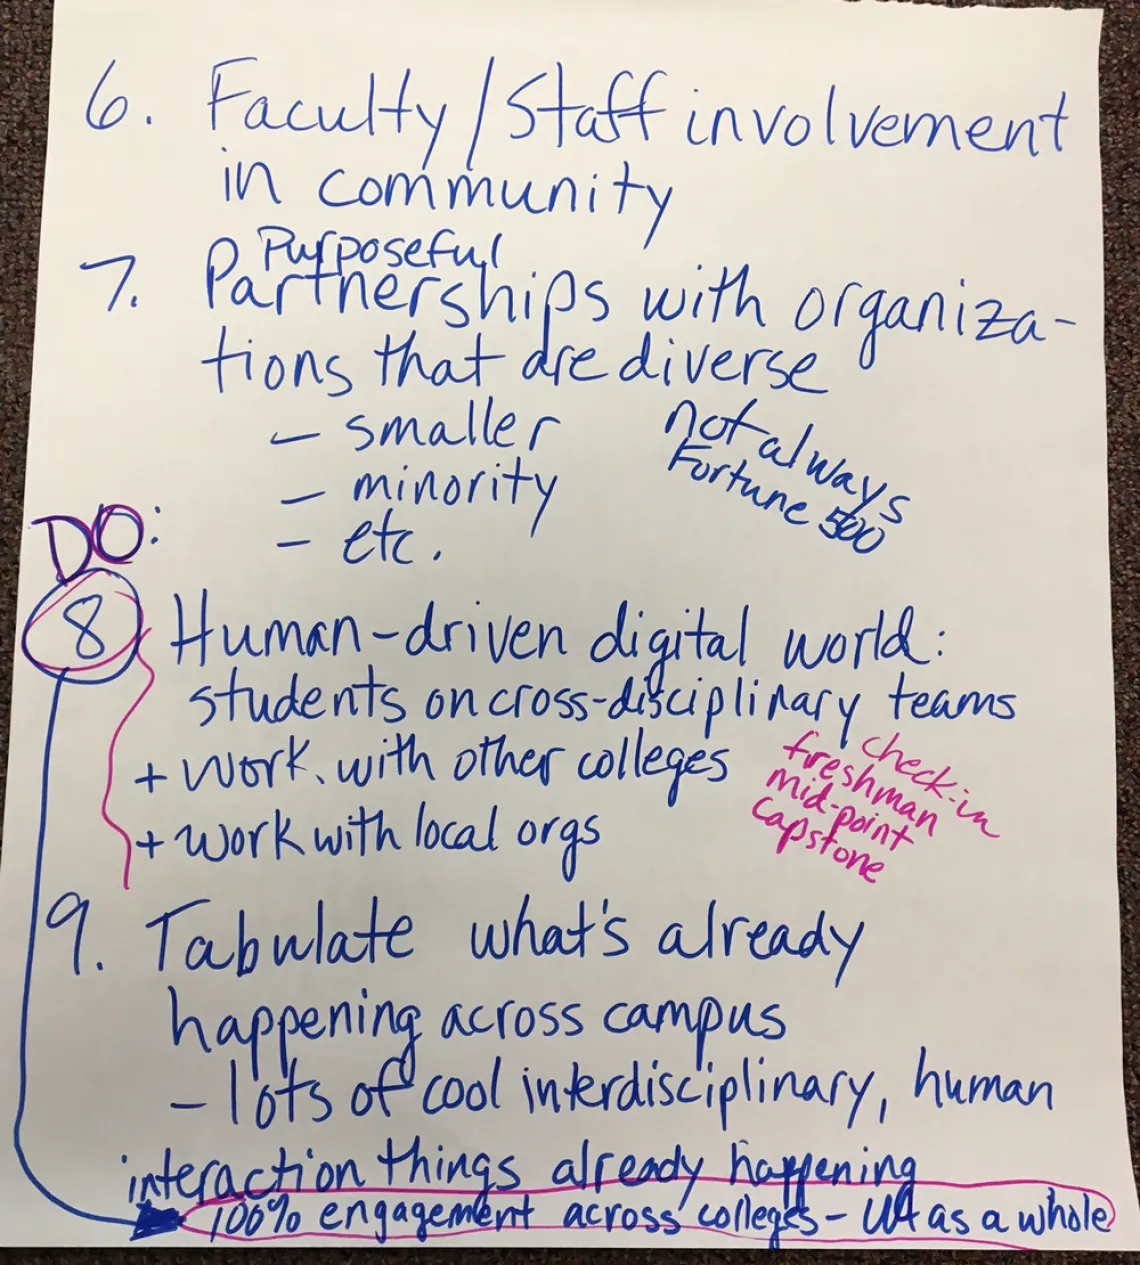 6. Faculty/Staff involvement
in community
Purposeful
7. Partnerships with organiza-
tions that are diverse
- smaller
- minority
- etc.
not always
Fortune 500
DO:
8 Human-driven digital world:
students on cross-disciplinary teams
+ work with other colleges
+ work with local orgs
check-in
freshman
mid-point
Capstone
9. Tabulate what's already
happening across campus
- lots of cool interdisciplinary, human
interaction things already happening
100% engagement across colleges - UA as a whole